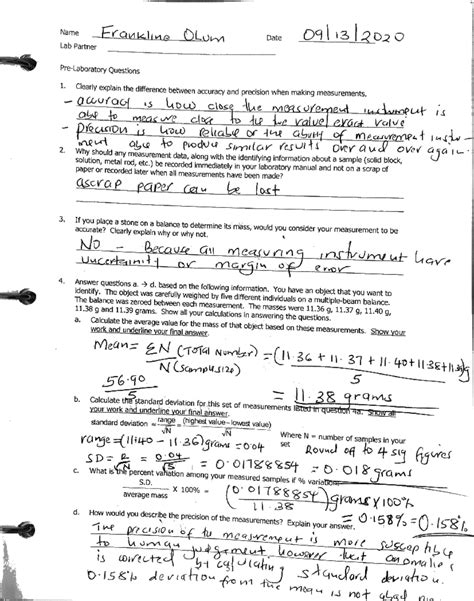 Name Frankline Olum Date 09/13/2020
Lab Partner
Pre-Laboratory Questions
1. Clearly explain the difference between accuracy and precision when making measurements.
- accuracy is how close the measurement instrument is
able to measure close to the true value/exact value
- Precision is how reliable or the ability of measurement instru-
ment able to produce similar results over and over again.
2. Why should any measurement data, along with the identifying information about a sample (solid block,
solution, metal rod, etc.) be recorded immediately in your laboratory manual and not on a scrap of
paper or recorded later when all measurements have been made?
ascrap paper can be lost
3. If you place a stone on a balance to determine its mass, would you consider your measurement to be
accurate? Clearly explain why or why not.
NO - Because all measuring instrument have
uncertainity or margin of error
4. Answer questions a. → d. based on the following information. You have an object that you want to
identify. The object was carefully weighed by five different individuals on a multiple-beam balance.
The balance was zeroed between each measurement. The masses were 11.36 g, 11.37 g, 11.40 g,
11.38 g and 11.39 grams. Show all your calculations in answering the questions.
a. Calculate the average value for the mass of that object based on these measurements. Show your
work and underline your final answer.
Mean = ΣN (Total Number) = (11.36 + 11.37 + 11.40 + 11.38 + 11.39)g
N (sample size) 5
56.90
5 = 11.38 grams
b. Calculate the standard deviation for this set of measurements listed in question 4a. Show all
your work and underline your final answer.
standard deviation = range/√N = (highest value – lowest value)/√N
Where N = number of samples in your
set
range = (11.40 - 11.36) grams = 0.04
Round off to 4 sig figures
SD = R/√N = 0.04/√5 = 0.01788854 = 0.018 grams
c. What is the percent variation among your measured samples if % variation =
S.D./average mass X 100% = (0.01788854/11.38) grams X 100%
= 0.158% = 0.158%
d. How would you describe the precision of the measurements? Explain your answer.
The precision of the measurement is more susceptible
to human judgement, however that anomalies
is corrected by calculating standard deviation.
0.158% deviation from the mean is not